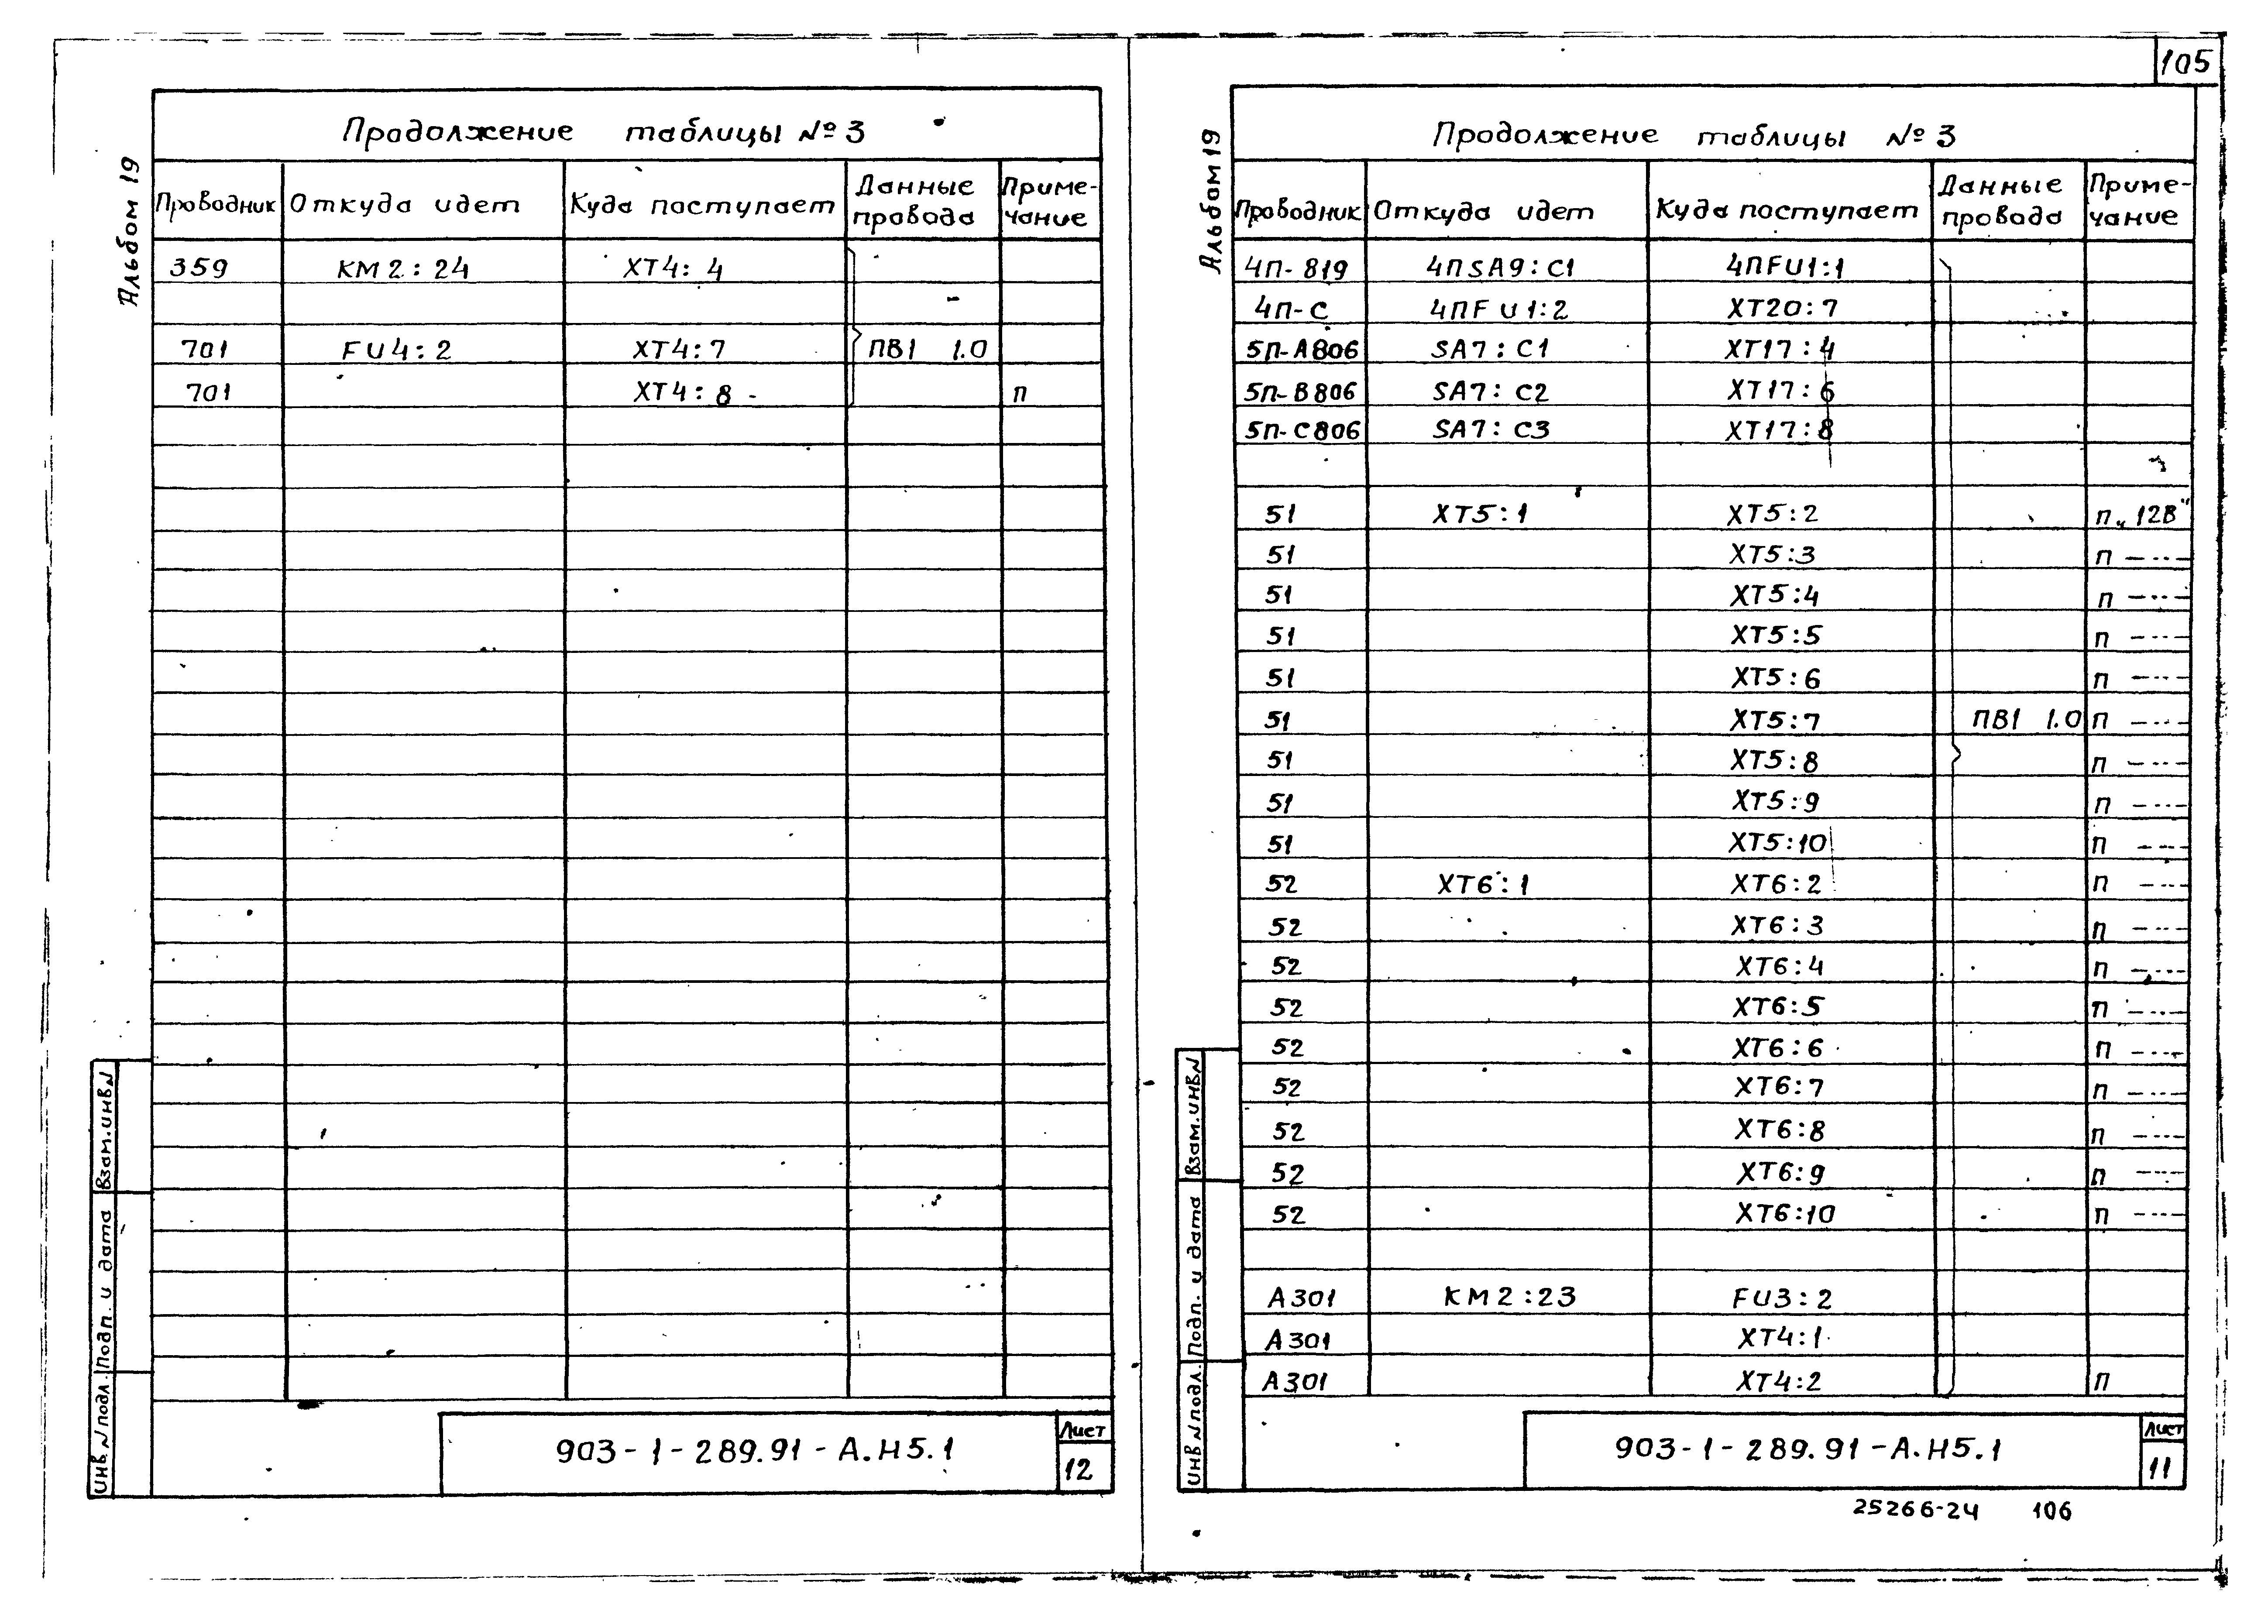 105
Альбом 19
Продолжение таблицы №3
Проводник Откуда идет Куда поступает Данные провода Приме-чание
359 КМ2:24 ХТ4:4
701 FU4:2 ХТ4:7 ПВ1 1.0
701 ХТ4:8 П
Взам.инв№
Подп. и дата
Инв№подл.
903-1-289.91-А.Н5.1
Лист
12
Альбом 19
Продолжение таблицы №3
Проводник Откуда идет Куда поступает Данные провода Приме-чание
4П-819 4ПSA9:C1 4ПFU1:1
4П-С 4ПFU1:2 ХТ20:7
5П-А806 SA7:C1 ХТ17:4
5П-В806 SA7:C2 ХТ17:6
5П-С806 SA7:C3 ХТ17:8
51 ХТ5:1 ХТ5:2 П „12В"
51 ХТ5:3 П —··—
51 ХТ5:4 П —··—
51 ХТ5:5 П —··—
51 ХТ5:6 П —··—
51 ХТ5:7 ПВ1 1.0 П —··—
51 ХТ5:8 П —··—
51 ХТ5:9 П —··—
51 ХТ5:10 П —··—
52 ХТ6:1 ХТ6:2 П —··—
52 ХТ6:3 П —··—
52 ХТ6:4 П —··—
52 ХТ6:5 П —··—
52 ХТ6:6 П —··—
52 ХТ6:7 П —··—
52 ХТ6:8 П —··—
52 ХТ6:9 П —··—
52 ХТ6:10 П —··—
А301 КМ2:23 FU3:2
А301 ХТ4:1
А301 ХТ4:2 П
Взам.инв№
Подп. и дата
Инв№подл.
903-1-289.91-А.Н5.1
Лист
11
25266-24 106